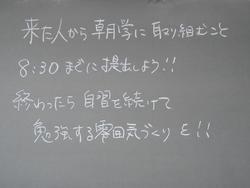 来た人から朝学に取り組むこと
8:30までに提出しよう!!
終わったら自習を続けて
勉強する雰囲気づくりを!!